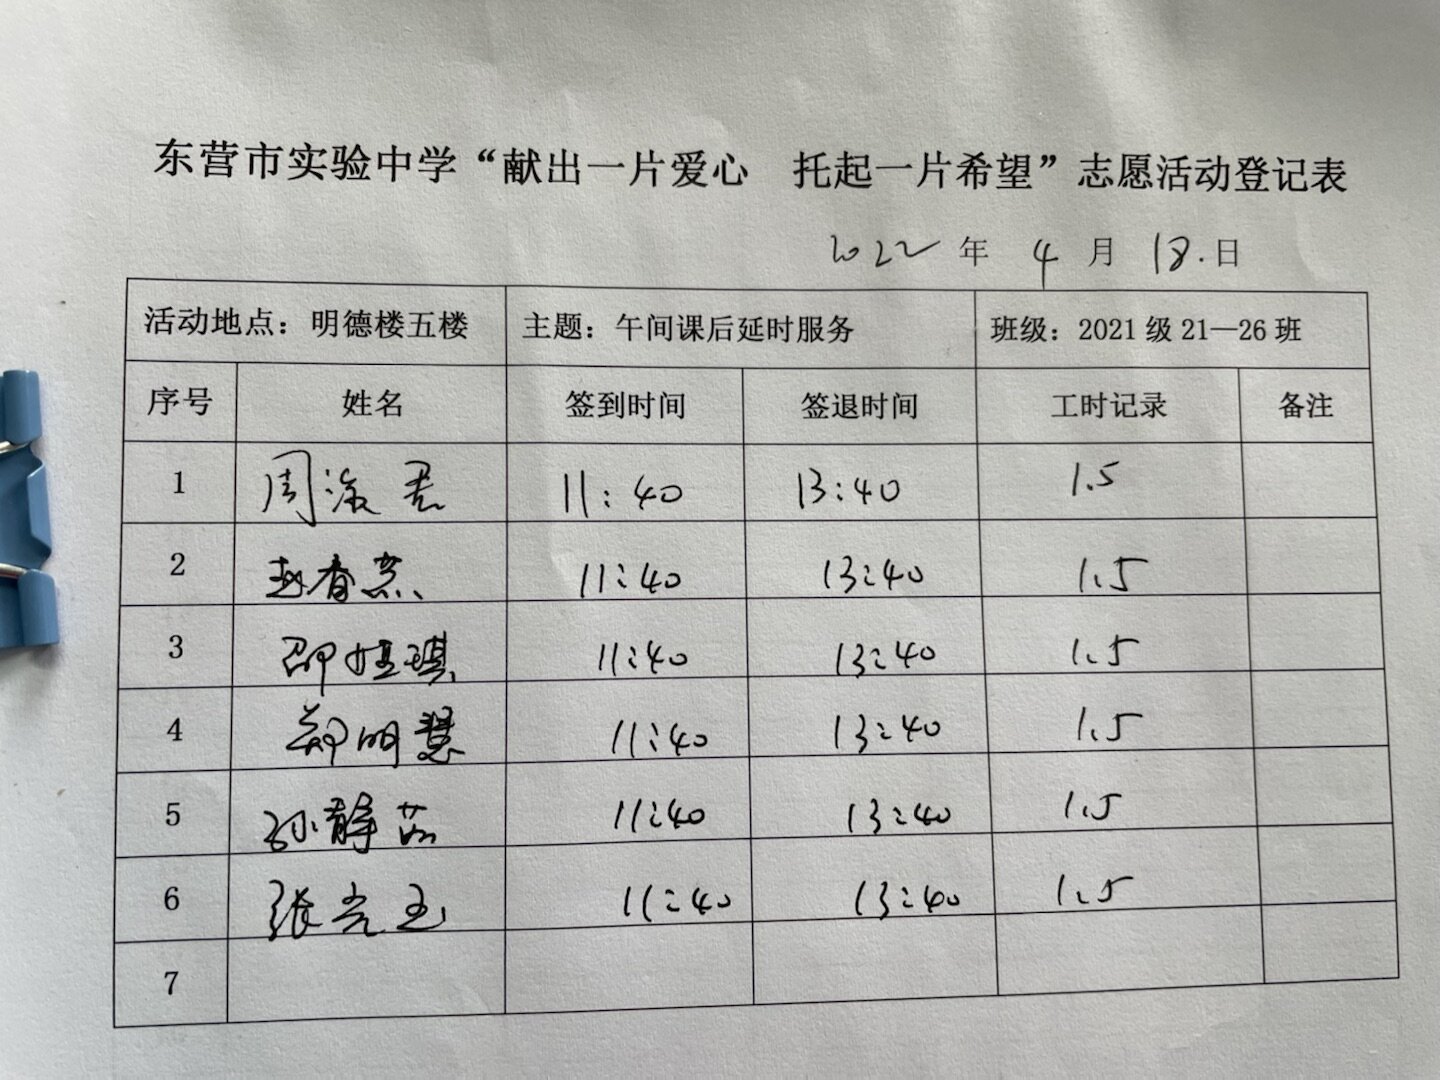 东营市实验中学“献出一片爱心 托起一片希望”志愿活动登记表
2022年4月18.日
活动地点：明德楼五楼 主题：午间课后延时服务 班级：2021级21—26班
序号 姓名 签到时间 签退时间 工时记录 备注
1 周 君 11:40 13:40 1.5
2 赵春燕 11:40 13:40 1.5
3 邵 琪 11:40 13:40 1.5
4 郑明慧 11:40 13:40 1.5
5 孙静茹 11:40 13:40 1.5
6 张光玉 11:40 13:40 1.5
7